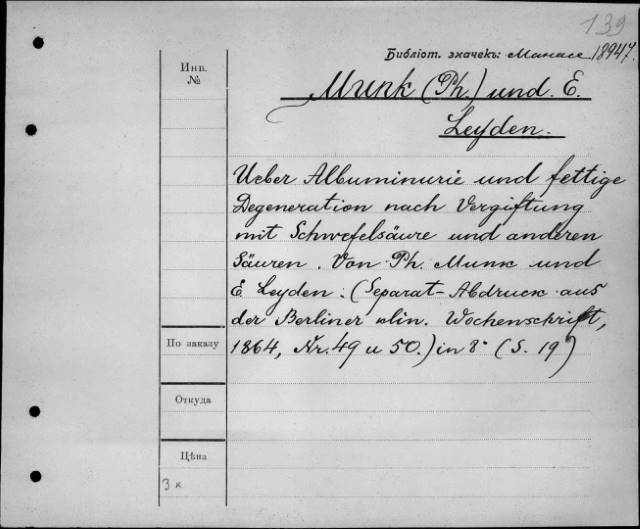 139
Библіот. значекъ: Манасс 18947.
Инв.
№
Munk (Ph.) und E.
Leyden.
Ueber Albuminurie und fettige
Degeneration nach Vergiftung
mit Schwefelsäure und anderen
Säuren. Von Ph. Munk und
E. Leyden. (Separat-Abdruck aus
der Berliner klin. Wochenschrift,
По заказу
1864, Nr. 49 u 50.) in 8° (S. 19)
Откуда
Цѣна
3 к